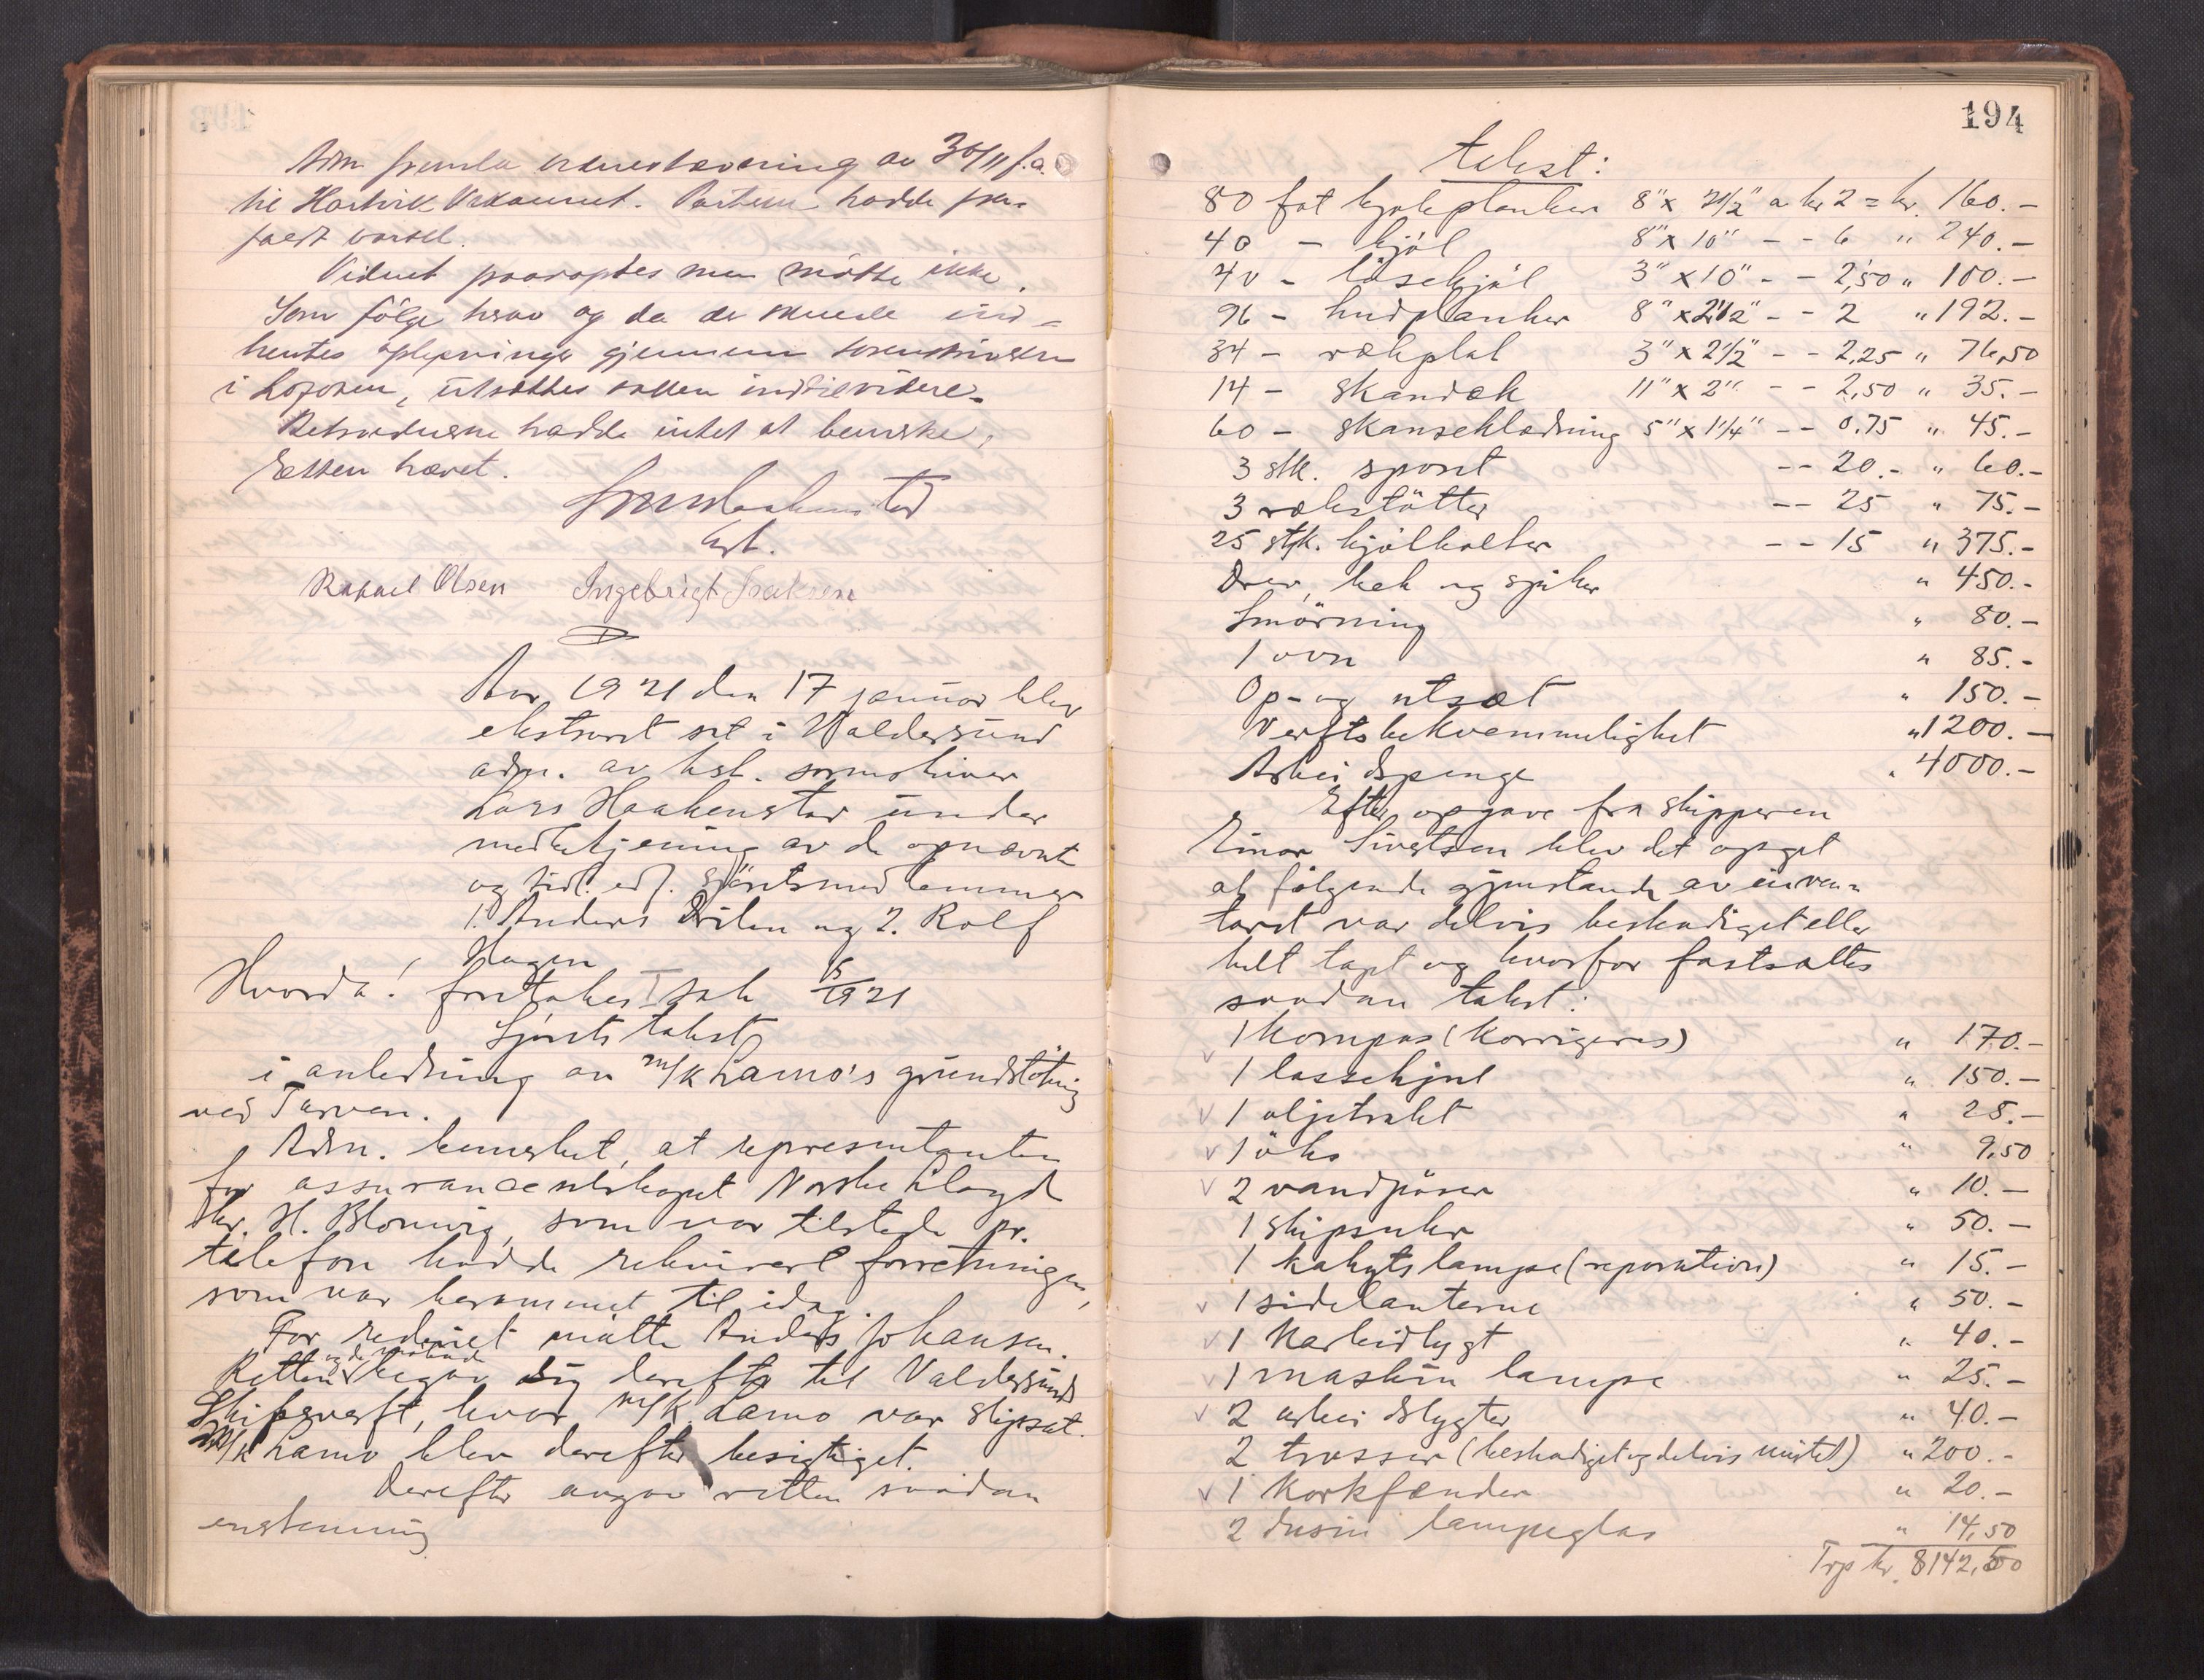 Adm fremla vidnestævning av 30/11 f.a.
til Hartvik Vikaunet. Parten hadde
faldt varsel.
Vidnet paaroptes men møtte ikke.
Som følge herav og da der skulde ind-
hentes oplysninger gjennem sorenskriveren
i Lofoten, utsattes saken indtilvidere.
Retsvidnerne hadde intet at bemerke,
Retten hævet.
Lars Haakenstad
kst.
Rafael Olsen Ingebrigt Isaksen
Aar 1921 den 17 januar blev
ekstraret sat i Valdersund
adm. av kst. sorenskriver
Lars Haakenstad under
medbetjening av de opnævnte
og tidl. edf. sjøretsmedlemmer
1. Anders Drilen og 2. Rolf
Hagen
Hvorda! foretokes I sak 5/1921
Sjøretstakst
i anledning av m/k Lamo's grundstötning
ved Tarven.
Adm. bemerket, at representanten
for assuranceselskapet Norske Lloyd
Hr. H. Blomvig, som var tilstede pr.
telefon hadde rekvirert forretningen,
som var berammet til idag.
For rederiet møtte Anders Johansen.
Retten og de møtende begav sig derefter til Valdersunds
Skipsverft, hvor m/k Lamo var slipsat.
m/k Lamo blev derefter besigtiget.
Derefter avgav retten saadan
enstemmig
194
takst:
80 fot kjølplanker 8" x 2½" a kr 2 = kr. 160.-
40 - kjøl 8" x 10" - - 6 " 240.-
40 - løsekjøl 3" x 10" - - 2,50 " 100.-
96 - hudplanker 8" x 2½" - - 2 " 192.-
34 - rækplat 3" x 2½" - - 2,25 " 76,50
14 - skandæk 11" x 2" - - 2,50 " 35.-
60 - skanseklædning 5" x 1¼" - - 0.75 " 45.-
3 stk. spont - - 20.- " 60.-
3 rækstøtter - - 25 " 75.-
25 stk. kjølbolter - - 15 " 375.-
Drev, bek og spiker " 450.-
Smörning " 80.-
1 ovn " 85.-
Op- og utsæt " 150.-
Verftsbekvemmelighet " 1200.-
Arbeidspenge " 4000.-
Efter opgave fra skipperen
Einar Sivertsen blev det opgit
at følgende gjenstande av inven-
taret var delvis beskadiget eller
helt tapt og hvorfor fastsattes
saadan takst:
1 kompas (korrigeres) " 170.-
1 lossehjul " 150.-
1 oljetrakt " 25.-
1 öks " 9,50
2 vandpöser " 10.-
1 skipsuhr " 50.-
1 kahytslampe (reparation) " 15.-
1 sidelanterne " 50.-
1 Karbidlygt " 40.-
1 maskin lampe " 25.-
2 arbeidslygter " 40.-
2 trosser (beskadiget og delvis mistet) " 200.-
1 korkfender " 20.-
2 dusin lampeglas " 14,50
Trp kr. 8142,50